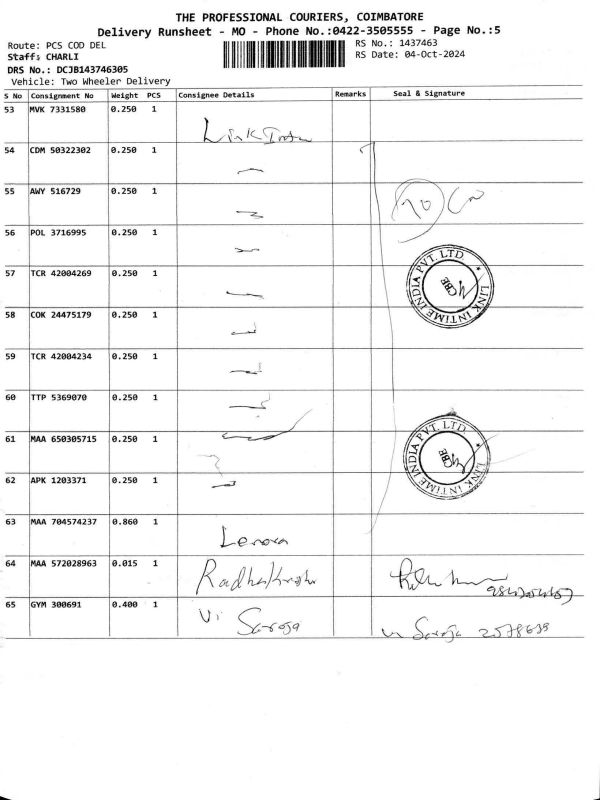 THE PROFESSIONAL COURIERS, COIMBATORE
Delivery Runsheet - MO - Phone No.:0422-3505555 - Page No.:5
Route: PCS COD DEL
RS No.: 1437463
Staff: CHARLI
RS Date: 04-Oct-2024
DRS No.: DCJB143746305
Vehicle: Two Wheeler Delivery
S No Consignment No Weight PCS Consignee Details Remarks Seal & Signature
53 MVK 7331580 0.250 1
Link
54 CDM 50322302 0.250 1
55 AWY 516729 0.250 1
56 POL 3716995 0.250 1
57 TCR 42004269 0.250 1
LINK INTIME INDIA PVT. LTD. CBE
58 COK 24475179 0.250 1
59 TCR 42004234 0.250 1
60 TTP 5369070 0.250 1
61 MAA 650305715 0.250 1
LINK INTIME INDIA PVT. LTD. CBE
62 APK 1203371 0.250 1
63 MAA 704574237 0.860 1
64 MAA 572028963 0.015 1
65 GYM 300691 0.400 1
Vi Saroja
Vi Saroja